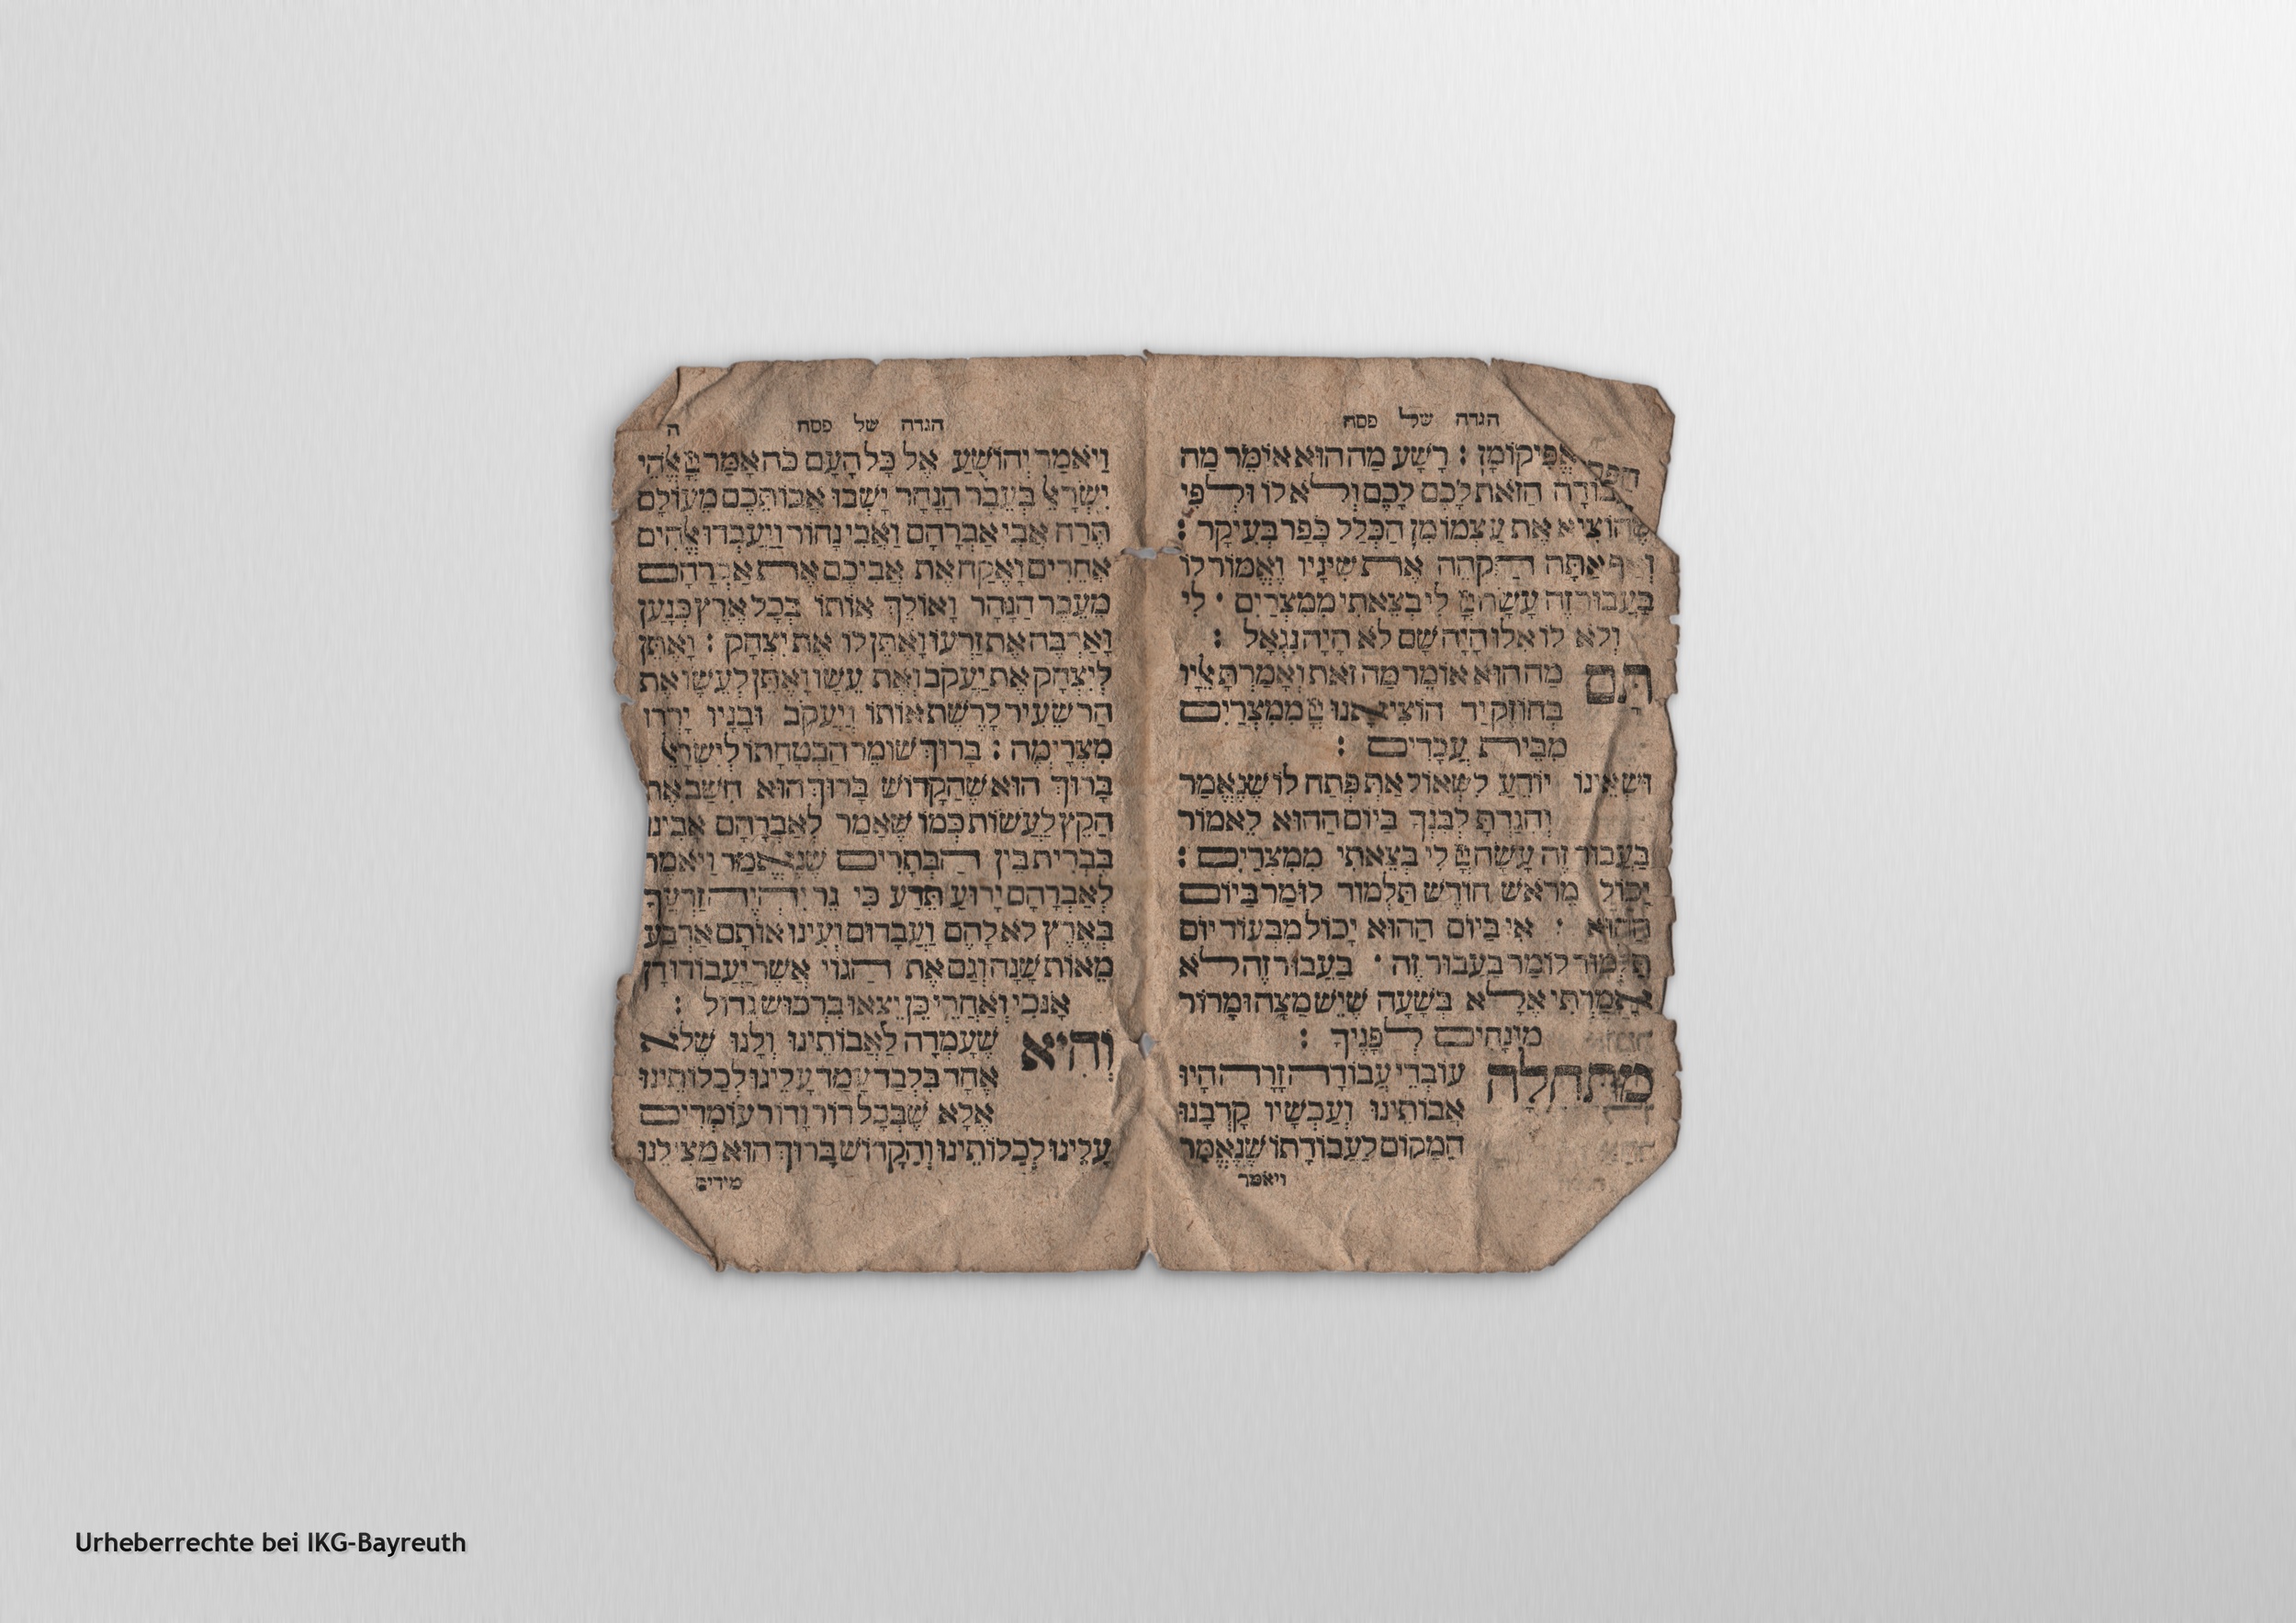 הגדה של פסח
אֲפִּיקוֹמָן : רָשָׁע מַה הוּא אוֹמֵר מַה
הַזֹּאת לָכֶם לָכֶם וְלֹא לוֹ וּלְפִי
שֶׁהוֹצִיא אֶת עַצְמוֹ מִן הַכְּלָל כָּפַר בְּעִיקָר :
וְאַף אַתָּה הַקְהֵה אֶת שִׁינָיו וֶאֱמוֹר לוֹ
בַּעֲבוּר זֶה עָשָׂה יְיָ לִי בְּצֵאתִי מִמִּצְרַיִם · לִי
וְלֹא לוֹ אִלּוּ הָיָה שָׁם לֹא הָיָה נִגְאָל :
תָּם מַה הוּא אוֹמֵר מַה זֹּאת וְאָמַרְתָּ אֵלָיו
בְּחוֹזֶק יָד הוֹצִיאָנוּ יְיָ מִמִּצְרַיִם
מִבֵּית עֲבָדִים :
וְשֶׁאֵינוֹ יוֹדֵעַ לִשְׁאוֹל אַתְּ פְּתַח לוֹ שֶׁנֶּאֱמַר
וְהִגַּדְתָּ לְבִנְךָ בַּיּוֹם הַהוּא לֵאמוֹר
בַּעֲבוּר זֶה עָשָׂה יְיָ לִי בְּצֵאתִי מִמִּצְרַיִם :
יָכוֹל מֵרֹאשׁ חוֹדֶשׁ תַּלְמוּד לוֹמַר בַּיּוֹם
הַהוּא · אִי בַּיּוֹם הַהוּא יָכוֹל מִבְּעוֹד יוֹם
תַּלְמוּד לוֹמַר בַּעֲבוּר זֶה · בַּעֲבוּר זֶה לֹא
אָמַרְתִּי אֶלָּא בְּשָׁעָה שֶׁיֵּשׁ מַצָּה וּמָרוֹר
מוּנָּחִים לְפָנֶיךָ :
מִתְּחִלָּה עוֹבְדֵי עֲבוֹדָה זָרָה הָיוּ
אֲבוֹתֵינוּ וְעַכְשָׁיו קֵרְבָנוּ
הַמָּקוֹם לַעֲבוֹדָתוֹ שֶׁנֶּאֱמַר
ויאמר
הגדה של פסח ה
וַיֹּאמֶר יְהוֹשֻׁעַ אֶל כָּל הָעָם כֹּה אָמַר יְיָ אֱלֹהֵי
יִשְׂרָאֵל בְּעֵבֶר הַנָּהָר יָשְׁבוּ אֲבוֹתֵכֶם מֵעוֹלָם
תֶּרַח אֲבִי אַבְרָהָם וַאֲבִי נָחוֹר וַיַּעַבְדוּ אֱלֹהִים
אֲחֵרִים וָאֶקַּח אֶת אֲבִיכֶם אֶת אַבְרָהָם
מֵעֵבֶר הַנָּהָר וָאוֹלֵךְ אוֹתוֹ בְּכָל אֶרֶץ כְּנָעַן
וָאַרְבֶּה אֶת זַרְעוֹ וָאֶתֵּן לוֹ אֶת יִצְחָק : וָאֶתֵּן
לְיִצְחָק אֶת יַעֲקֹב וְאֶת עֵשָׂו וָאֶתֵּן לְעֵשָׂו אֶת
הַר שֵׂעִיר לָרֶשֶׁת אוֹתוֹ וְיַעֲקֹב וּבָנָיו יָרְדוּ
מִצְרָיְמָה : בָּרוּךְ שׁוֹמֵר הַבְטָחָתוֹ לְיִשְׂרָאֵל
בָּרוּךְ הוּא שֶׁהַקָּדוֹשׁ בָּרוּךְ הוּא חִשַּׁב אֶת
הַקֵּץ לַעֲשׂוֹת כְּמוֹ שֶׁאָמַר לְאַבְרָהָם אָבִינוּ
בִּבְרִית בֵּין הַבְּתָרִים שֶׁנֶּאֱמַר וַיֹּאמֶר
לְאַבְרָהָם יָדוֹעַ תֵּדַע כִּי גֵר יִהְיֶה זַרְעֲךָ
בְּאֶרֶץ לֹא לָהֶם וַעֲבָדוּם וְעִינּוּ אוֹתָם אַרְבַּע
מֵאוֹת שָׁנָה וְגַם אֶת הַגּוֹי אֲשֶׁר יַעֲבוֹדוּ דָּן
אָנֹכִי וְאַחֲרֵי כֵן יֵצְאוּ בִּרְכוּשׁ גָּדוֹל :
וְהִיא שֶׁעָמְדָה לַאֲבוֹתֵינוּ וְלָנוּ שֶׁלֹּא
אֶחָד בִּלְבַד עָמַד עָלֵינוּ לְכַלּוֹתֵינוּ
אֶלָּא שֶׁבְּכָל דּוֹר וָדוֹר עוֹמְדִים
עָלֵינוּ לְכַלּוֹתֵינוּ וְהַקָּדוֹשׁ בָּרוּךְ הוּא מַצִּילֵנוּ
מידים
Urheberrechte bei IKG-Bayreuth